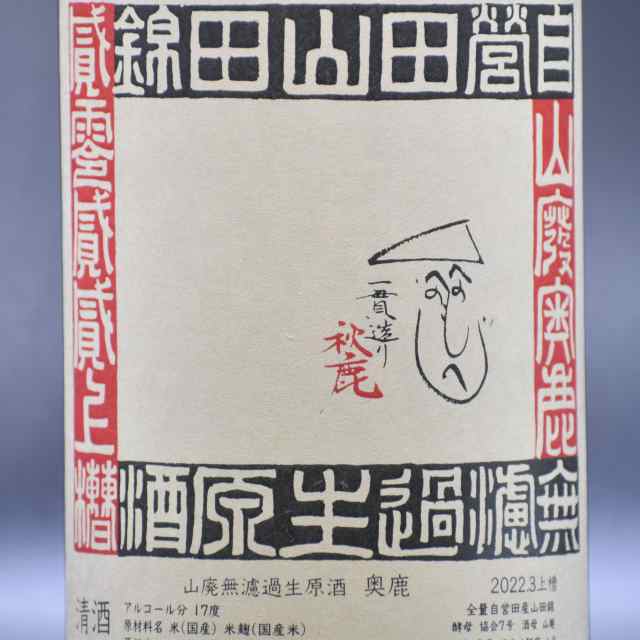 自営田山田錦
山廢奥鹿
無濾過生原酒
貳零貳貳上槽
一貫造り
秋鹿
山廃無濾過生原酒 奥鹿
2022.3上槽
清酒
アルコール分 17度
原材料名 米(国産) 米麹(国産米)
全量自営田産山田錦
酵母 協会7号 酒母 山廃